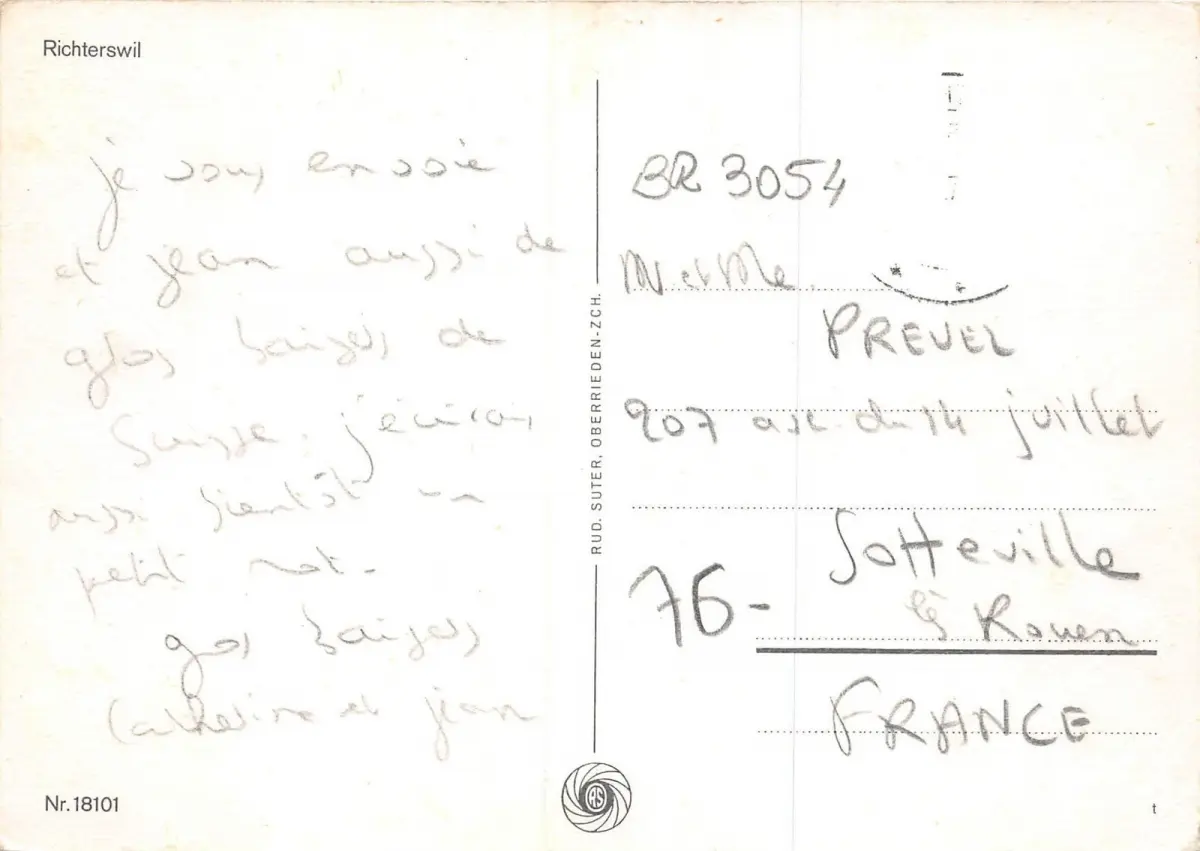 Richterswil
je vous envoie
et jean aussi de
gros baisers de
Suisse. j'écrirai
aussi bientôt un
petit mot.
gros baisers
Catherine et jean
Nr. 18101
RUD. SUTER, OBERRIEDEN-ZCH.
BR 3054
M et Mme.
PREVEL
207 ave. du 14 juillet
Sotteville
lès Rouen
76-
FRANCE
t